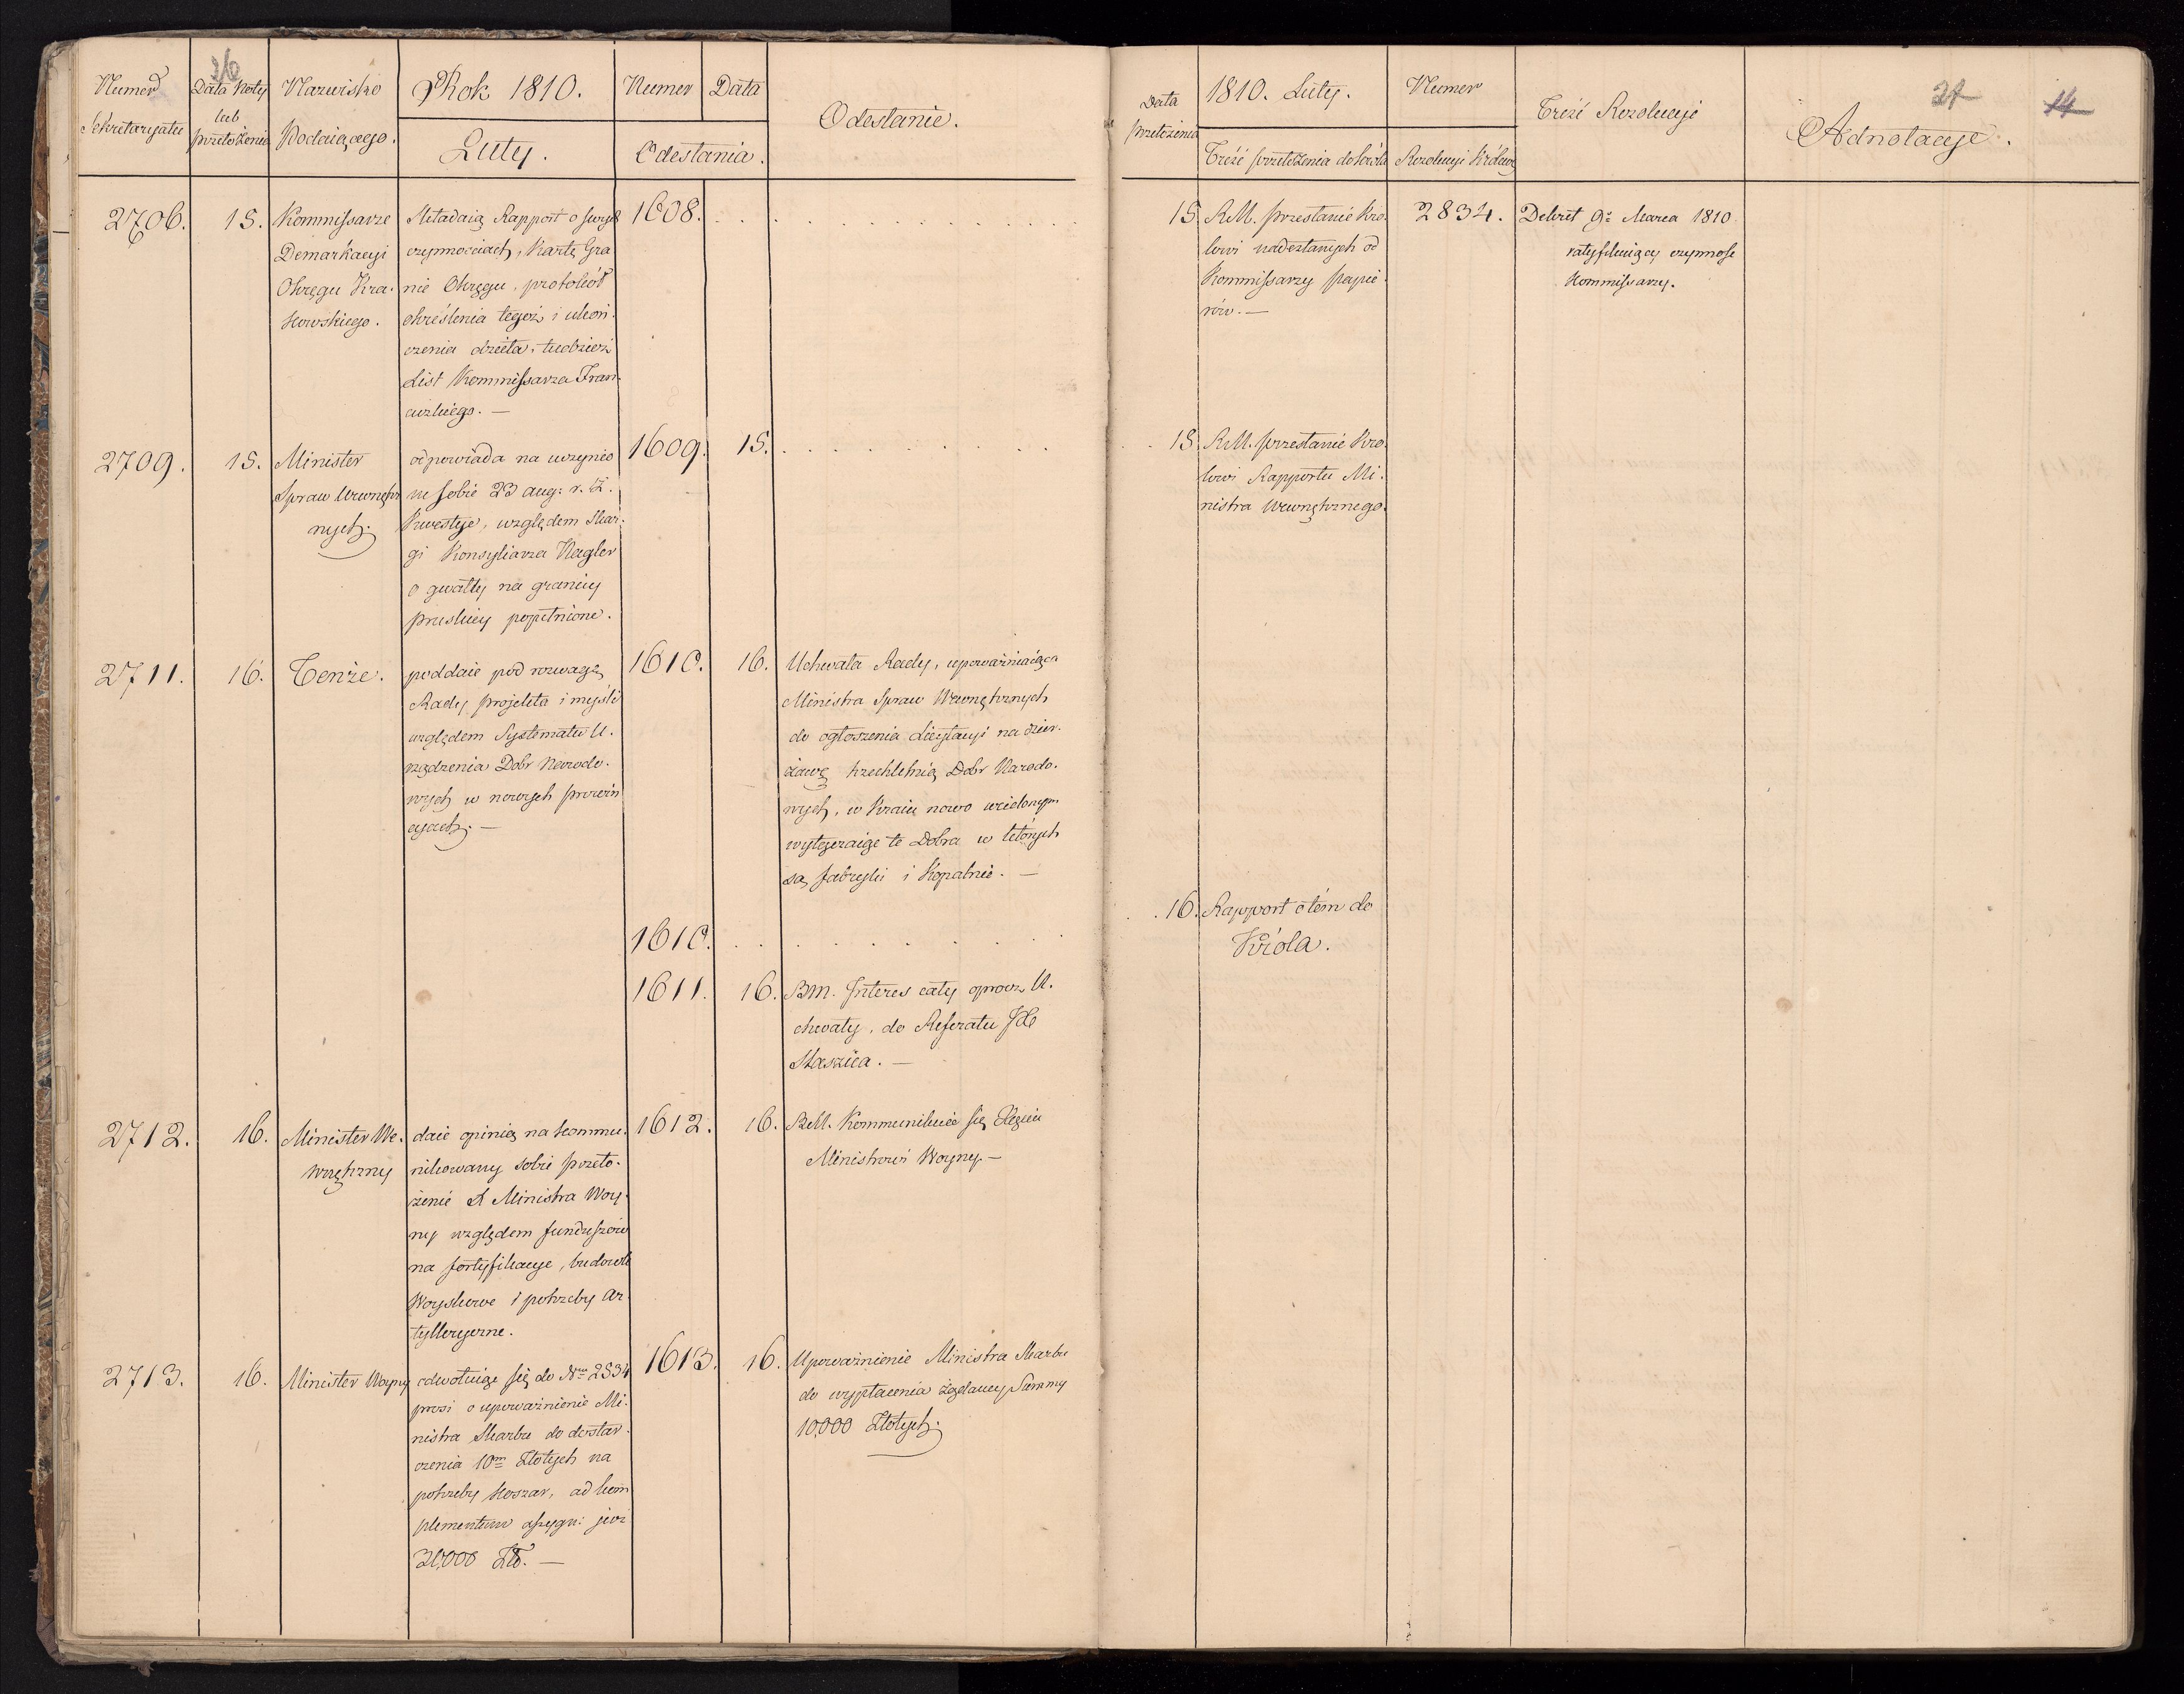 26
Numer
Sekretaryatu
Data Noty
lub
przełożenia
Nazwisko
Podaiącego.
Rok 1810.
Luty.
Numer
Data
Odesłania.
Odesłanie.
2706.
15.
Kommissarze
Demarkacyi
Okręgu Kra-
kowskiego.
składaią Rapport o swych
czynnościach, Kartę Gra
nic Okręgu, protokół
określenia tegoż i ukoń-
czenia dzieła, tudzież
List Kommissarza Fran-
cuzkiego. —
1608.
2709.
15.
Minister
Spraw Wewnętrz
nych.
odpowiada na uczynio
ne sobie 23 aug: r. z.
Kwestye, względem Skar-
gi Konsyliarza Nagler
o gwałty na granicy
pruskiey popełnione.
1609.
15.
2711.
16.
Tenże.
poddaie pod rozwagę
Rady projekta i myśli
względem Systematu U-
rządzenia Dobr Narodo-
wych w nowych prowin
cyach. —
1610.
16.
Uchwała Rady, upoważniaiąca
Ministra Spraw Wewnętrznych
do ogłoszenia Licytacyi na dzier-
żawę trzechletnią Dobr Narodo-
wych, w Kraiu nowo wcielonym
wyłączaiąc te Dobra w których
są fabryki i Kopalnie. —
1610.
1611.
16.
BM. Interes cały oprocz U-
chwały, do Referatu JX
Staszica. —
2712.
16.
Minister We-
wnętrzny
daie opinią na kommu-
nikowany sobie przeło-
żenie X Ministra Woy-
ny względem funduszow
na fortyfikacye, budowle
Woyskowe i potrzeby Ar-
tylleryczne.
1612.
16.
BM. Kommunikuie się Xięciu
Ministrowi Woyny. —
2713.
16.
Minister Woyny
odwołuiąc się do Nru 2534
prosi o upoważnienie Mi-
nistra Skarbu do dostar-
czenia 10m Złotych na
potrzeby koszar, ad kom
plementum assygn: już
30,000 Zł. —
1613.
16.
Upoważnienie Ministra Skarbu
do wypłacenia żądaney Summy
10,000 Złotych.
Data
przełożenia
1810. Luty.
Treść przełożenia do Króla
Numer
Rezolucyi Królew
Treść Rezolucyi
Adnotacye.
27
14
15.
RM. przesłanie Kró-
lowi nadesłanych od
Kommissarzy papie-
rów. —
2834.
Dekret 9. Marca 1810
ratyfikuiący czynność
Kommissarzy.
15.
RM. przesłanie Kró-
lowi Rapportu Mi-
nistra Wewnętrznego.
16.
Rapport o tém do
Króla.